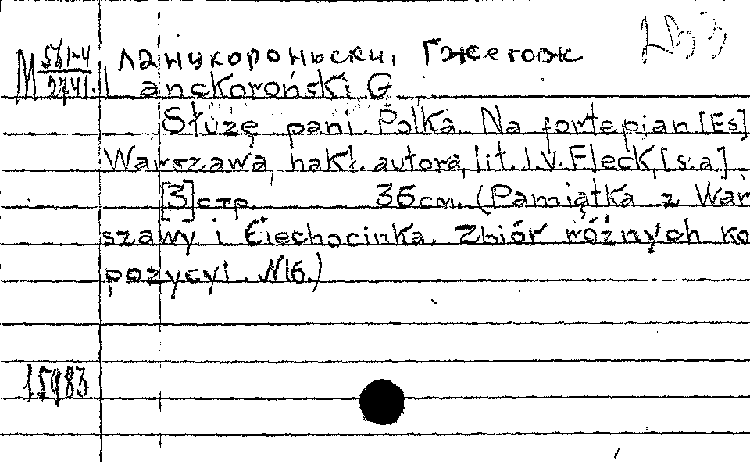 М 571-4/2741. Ланцкороньски, Гжегорж
Lanckoroński G.
Służę pani. Polka. Na fortepian [Es]
Warszawa, nakł. autora, lit. J.V. Fleck, [s.a.]
[3] стр. 36 см. (Pamiątka z War
szawy i Ciechocinka. Zbiór różnych ko
pozycyi. №16.)
15983